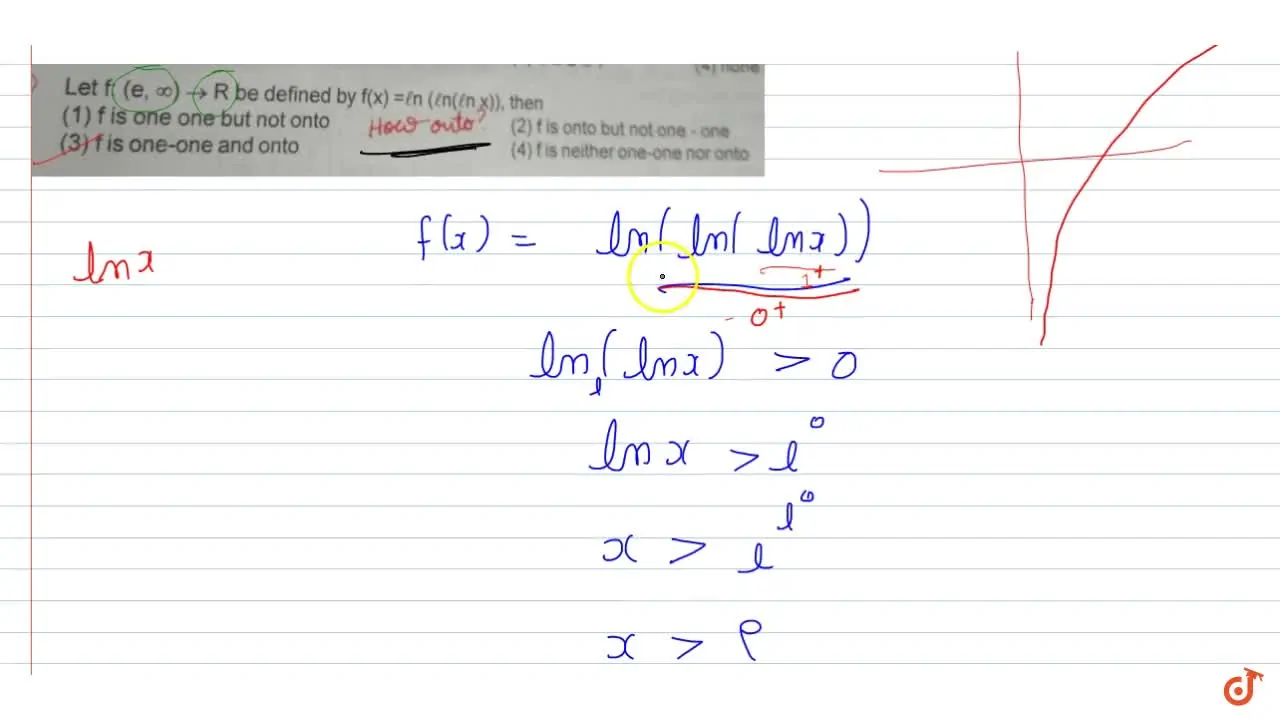 (4) none
Let f: (e, ∞) → R be defined by f(x) = ℓn (ℓn(ℓn x)), then
(1) f is one one but not onto
How onto?
(2) f is onto but not one - one
(3) f is one-one and onto
(4) f is neither one-one nor onto
ln x
f(x) = ln(ln(ln x))
1+
0+
ln e (ln x) > 0
ln x > e^0
x > e^e^0
x > e